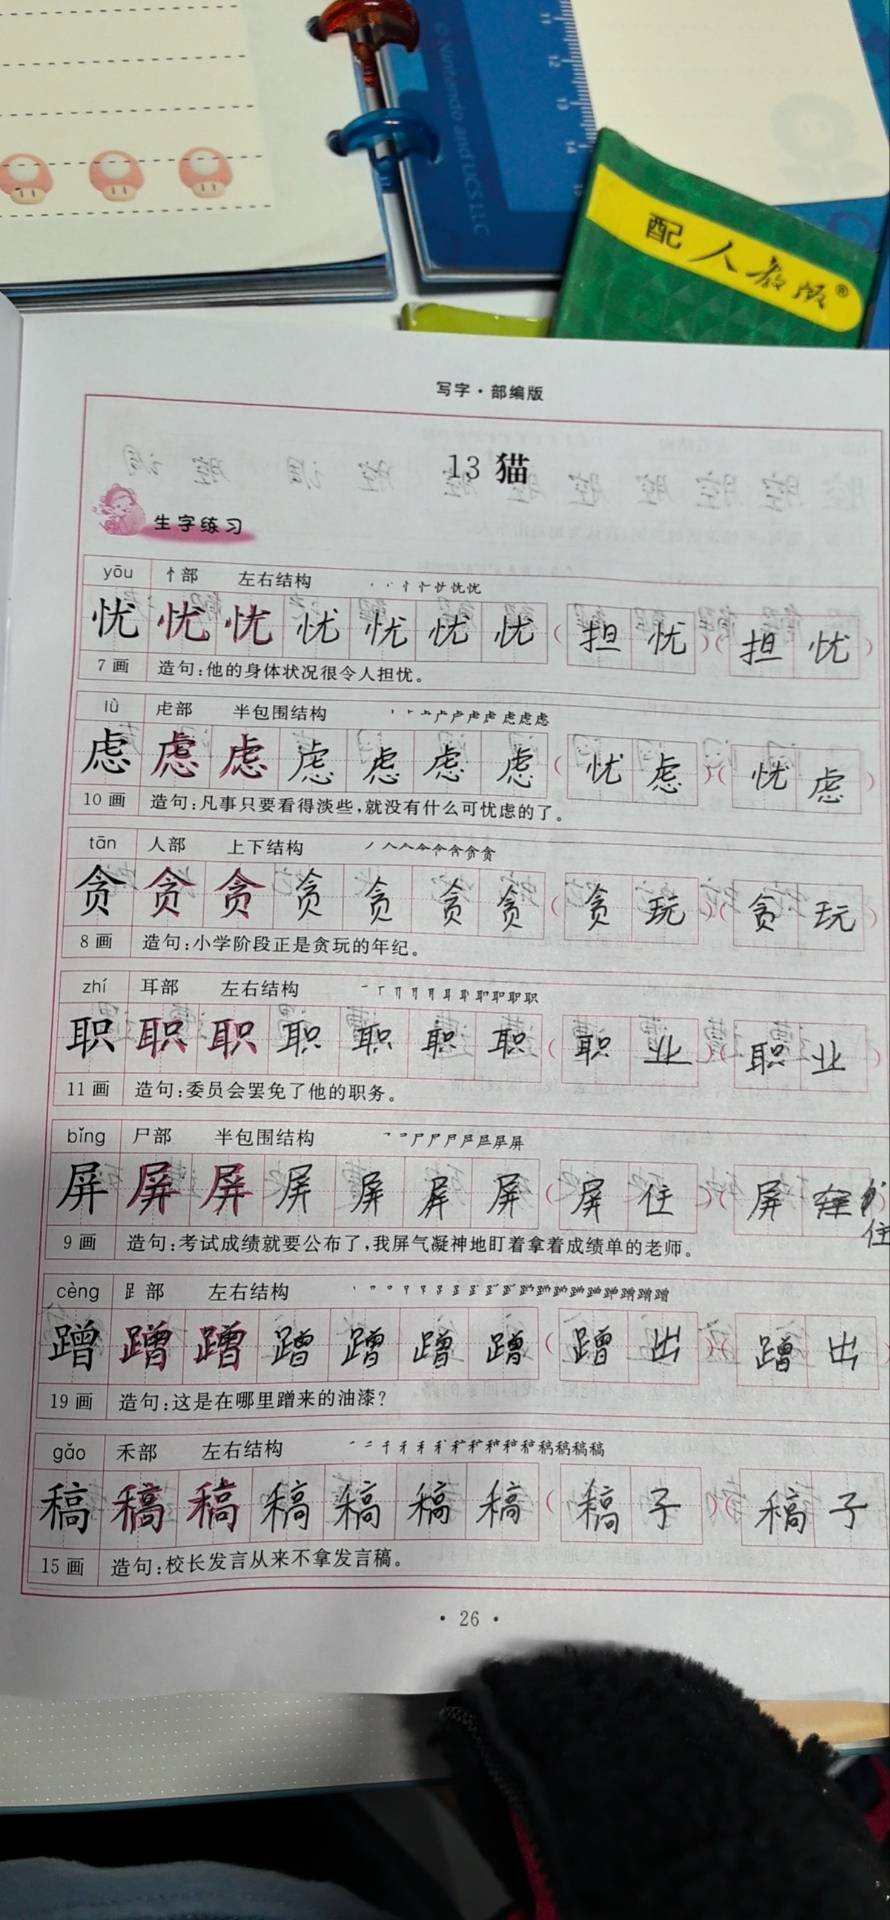 © Nintendo and LCS LLC
11
12
13
14
15
配人教版®
写字·部编版
13 猫
生字练习
yōu 忄部 左右结构
忧 忧 忧 忧 忧 忧 忧 (担 忧)(担 忧)
7 画 造句:他的身体状况很令人担忧。
lǜ 虍部 半包围结构
虑 虑 虑 虑 虑 虑 虑 (忧 虑)(忧 虑)
10 画 造句:凡事只要看得淡些,就没有什么可忧虑的了。
tān 人部 上下结构
贪 贪 贪 贪 贪 贪 贪 (贪 玩)(贪 玩)
8 画 造句:小学阶段正是贪玩的年纪。
zhí 耳部 左右结构
职 职 职 职 职 职 职 (职 业)(职 业)
11 画 造句:委员会罢免了他的职务。
bǐng 尸部 半包围结构
屏 屏 屏 屏 屏 屏 屏 (屏 住)(屏 住)
9 画 造句:考试成绩就要公布了,我屏气凝神地盯着拿着成绩单的老师。
cèng 𧾷部 左右结构
蹭 蹭 蹭 蹭 蹭 蹭 蹭 (蹭 出)(蹭 出)
19 画 造句:这是在哪里蹭来的油漆?
gǎo 禾部 左右结构
稿 稿 稿 稿 稿 稿 稿 (稿 子)(稿 子)
15 画 造句:校长发言从来不拿发言稿。
· 26 ·